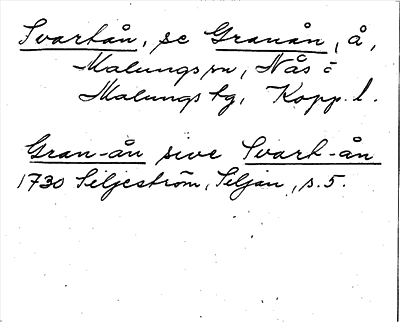 Svartån, se Granån, å,
Malungs sn, Nås o
Malungs tg, Kopp. l.
Gran-ån sive Svart-ån
1730 Siljeström, Siljan, s. 5.